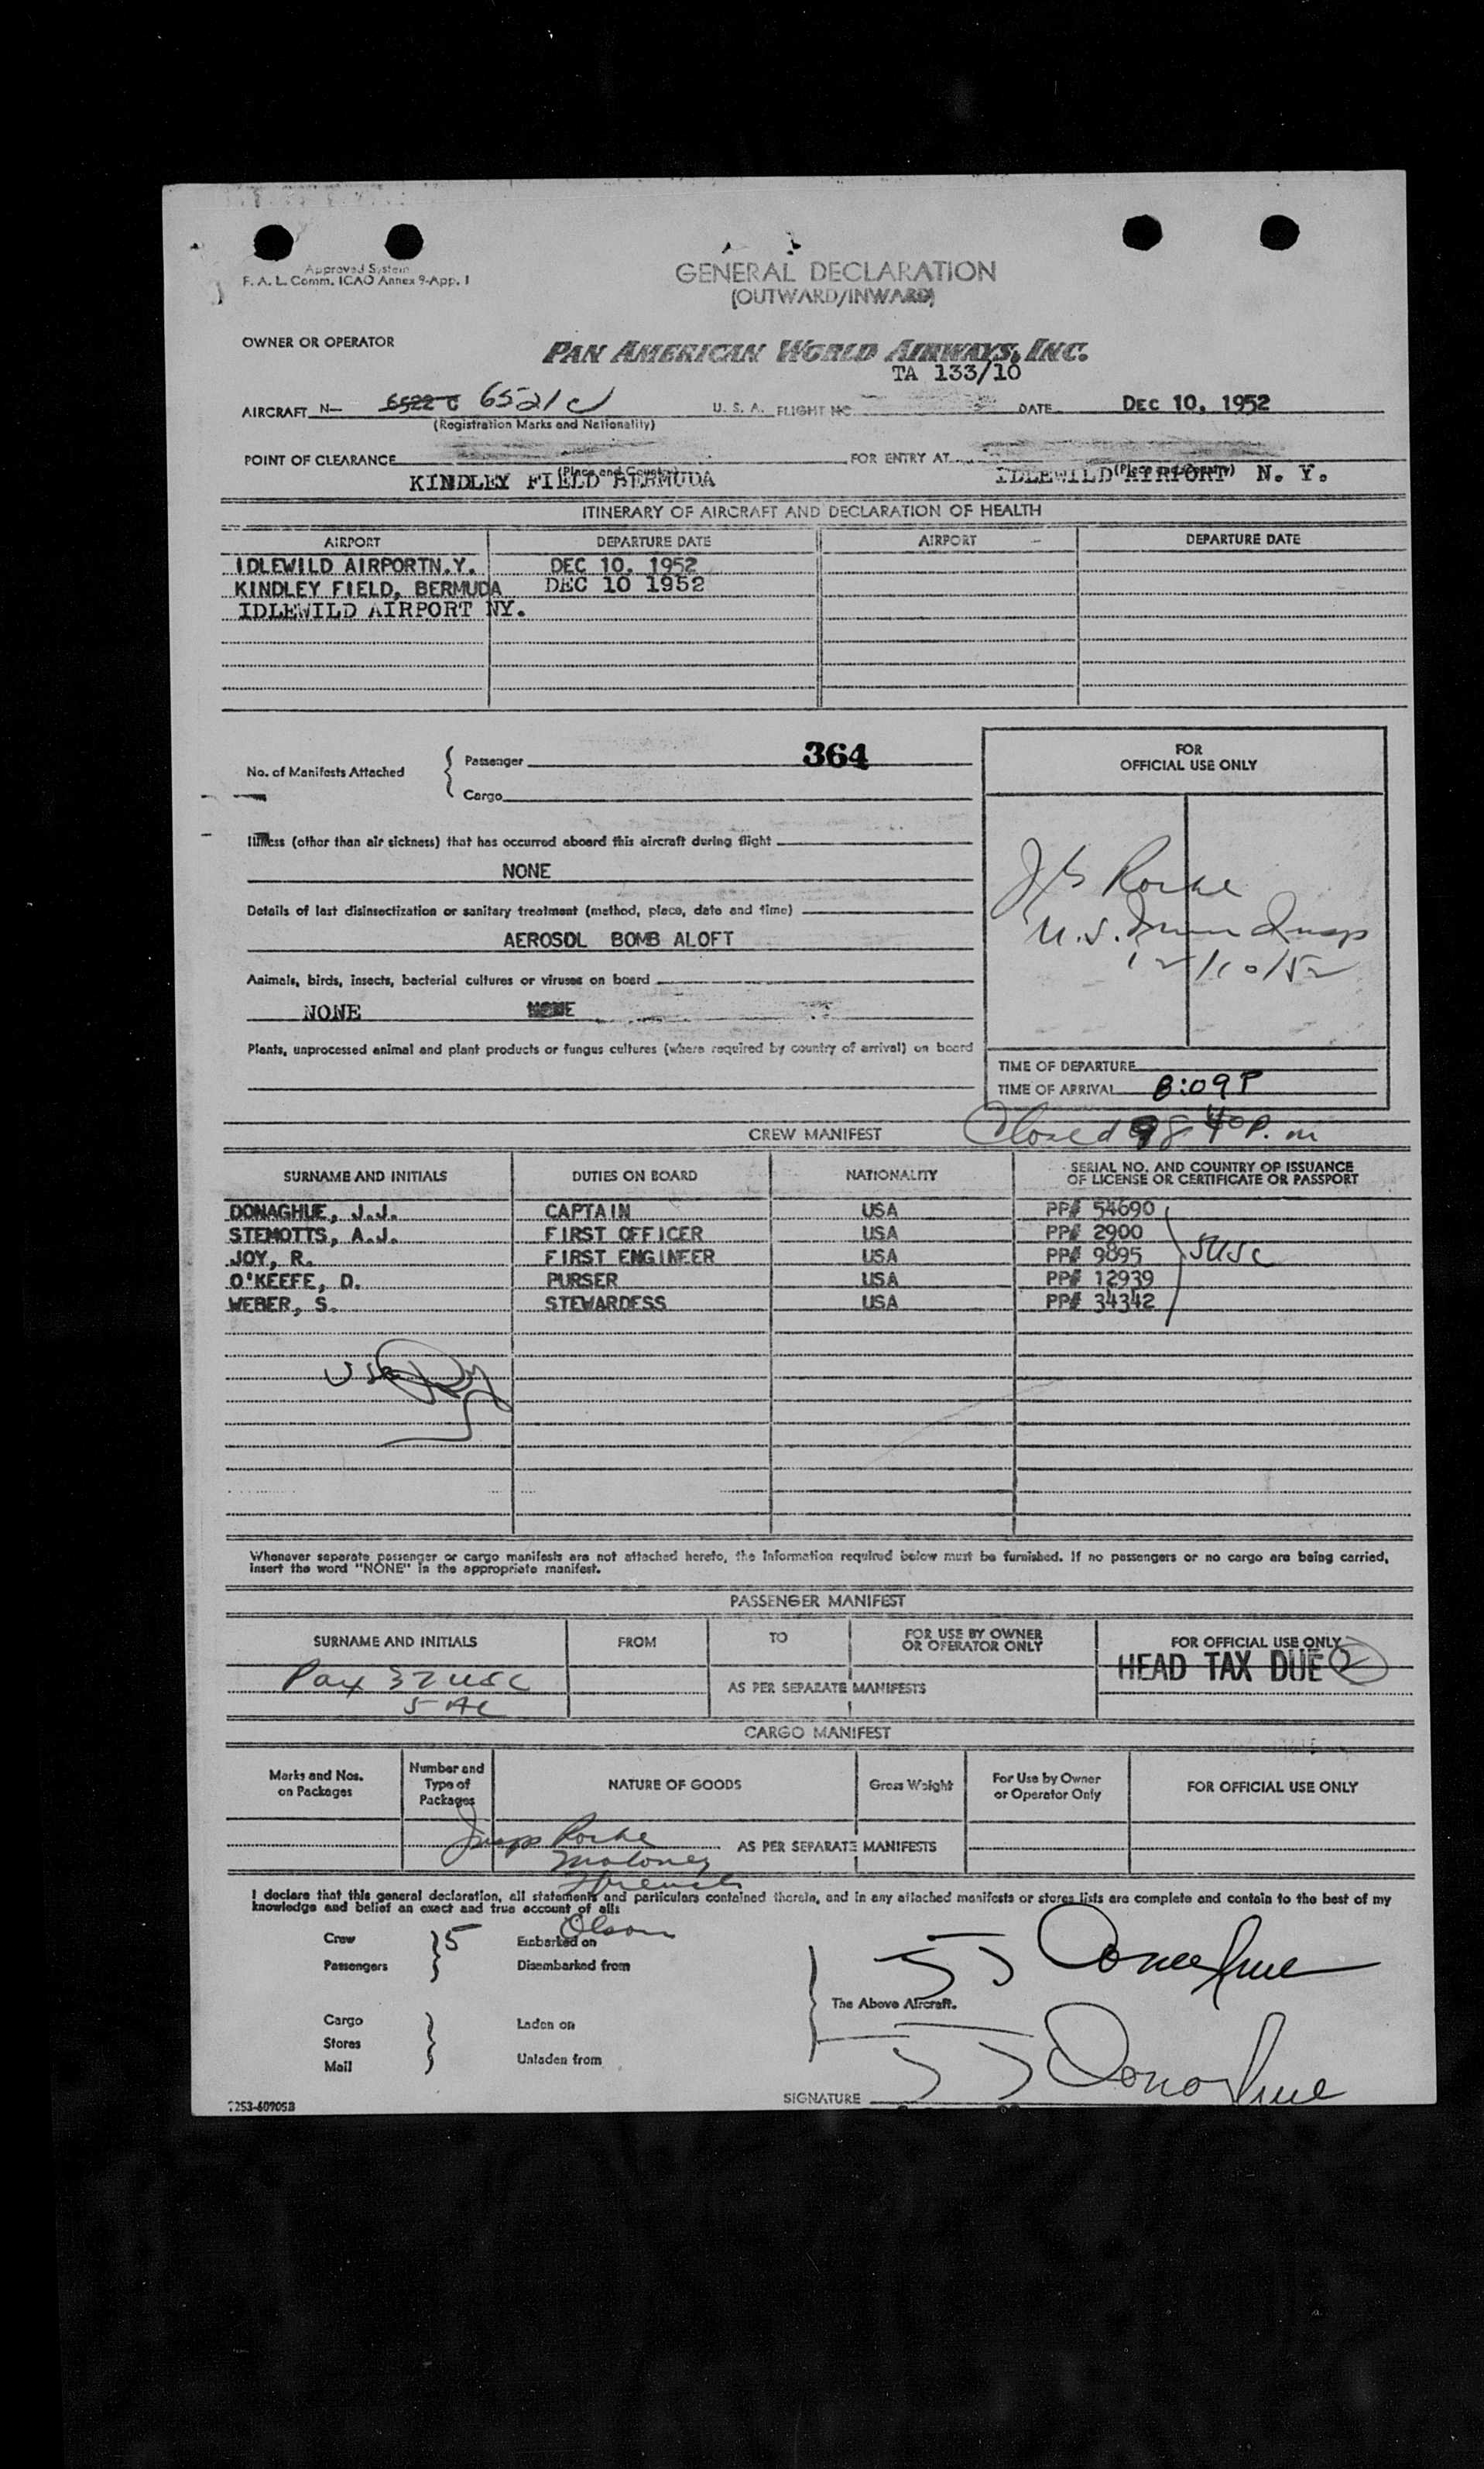 Approved System
F. A. L. Comm. ICAO Annex 9-App. I
GENERAL DECLARATION
(OUTWARD/INWARD)
OWNER OR OPERATOR
PAN AMERICAN WORLD AIRWAYS, INC.
TA 133/10
AIRCRAFT N— 6522 C 6521C U. S. A. FLIGHT NO. DATE DEC 10, 1952
(Registration Marks and Nationality)
POINT OF CLEARANCE FOR ENTRY AT
(Place and Country) (Place and Country)
KINDLEY FIELD BERMUDA IDLEWILD AIRPORT N. Y.
ITINERARY OF AIRCRAFT AND DECLARATION OF HEALTH
AIRPORT DEPARTURE DATE AIRPORT DEPARTURE DATE
IDLEWILD AIRPORTN.Y. DEC 10, 1952
KINDLEY FIELD, BERMUDA DEC 10 1952
IDLEWILD AIRPORT NY.
No. of Manifests Attached
Passenger 364
Cargo
FOR
OFFICIAL USE ONLY
Illness (other than air sickness) that has occurred aboard this aircraft during flight
NONE
Details of last disinsectization or sanitary treatment (method, place, date and time)
AEROSOL BOMB ALOFT
Animals, birds, insects, bacterial cultures or viruses on board
NONE NONE
Plants, unprocessed animal and plant products or fungus cultures (where required by country of arrival) on board
Rorke
U.S. Imm Insp
12/10/52
TIME OF DEPARTURE
TIME OF ARRIVAL 8:09P
Closed 8 40 P. m
CREW MANIFEST
SURNAME AND INITIALS DUTIES ON BOARD NATIONALITY SERIAL NO. AND COUNTRY OF ISSUANCE
OF LICENSE OR CERTIFICATE OR PASSPORT
DONAGHUE, J.J. CAPTAIN USA PP# 54690
STEMOTTS, A.J. FIRST OFFICER USA PP# 2900
JOY, R. FIRST ENGINEER USA PP# 9895 5USC
O'KEEFE, D. PURSER USA PP# 12939
WEBER, S. STEWARDESS USA PP# 34342
Whenever separate passenger or cargo manifests are not attached hereto, the information required below must be furnished. If no passengers or no cargo are being carried,
insert the word "NONE" in the appropriate manifest.
PASSENGER MANIFEST
SURNAME AND INITIALS FROM TO FOR USE BY OWNER
OR OPERATOR ONLY FOR OFFICIAL USE ONLY
HEAD TAX DUE 2
Pax 32 USC
5 AC
AS PER SEPARATE MANIFESTS
CARGO MANIFEST
Marks and Nos.
on Packages
Number and
Type of
Packages
NATURE OF GOODS Gross Weight
For Use by Owner
or Operator Only
FOR OFFICIAL USE ONLY
Insps Rorke
AS PER SEPARATE MANIFESTS
Moloney
I declare that this general declaration, all statements and particulars contained therein, and in any attached manifests or stores lists are complete and contain to the best of my
knowledge and belief an exact and true account of all:
Olson
Crew 5 Embarked on
Passengers Disembarked from
The Above Aircraft.
J J Donaghue
Cargo Laden on
Stores
Mail Unladen from
SIGNATURE J J Donaghue
7253-60905B